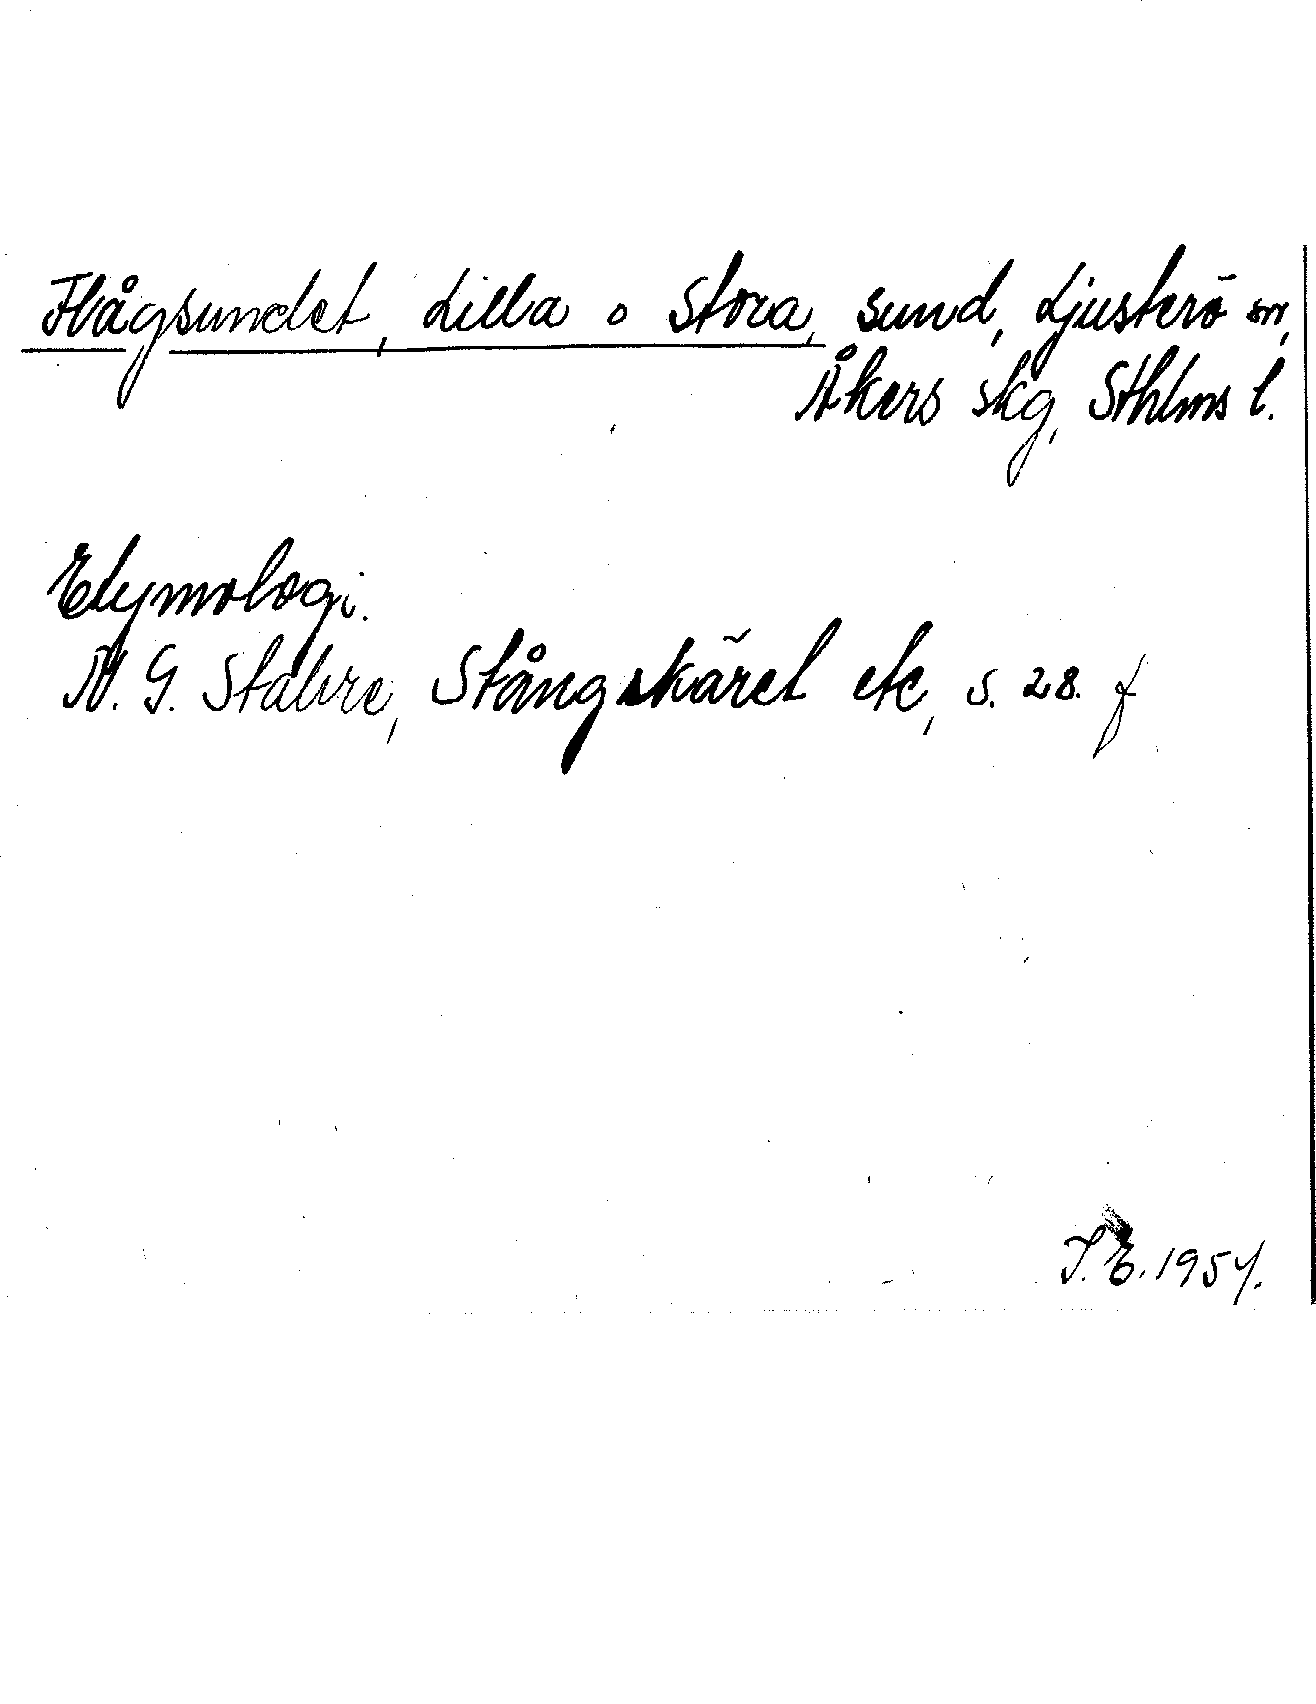 Flågsundet, Lilla o Stora, sund, Ljusterö sn,
Åkers skg, Sthlms l.
Etymologi.
N. G. Stahre, Stångskäret etc, s. 28. f
I. E. 1957.